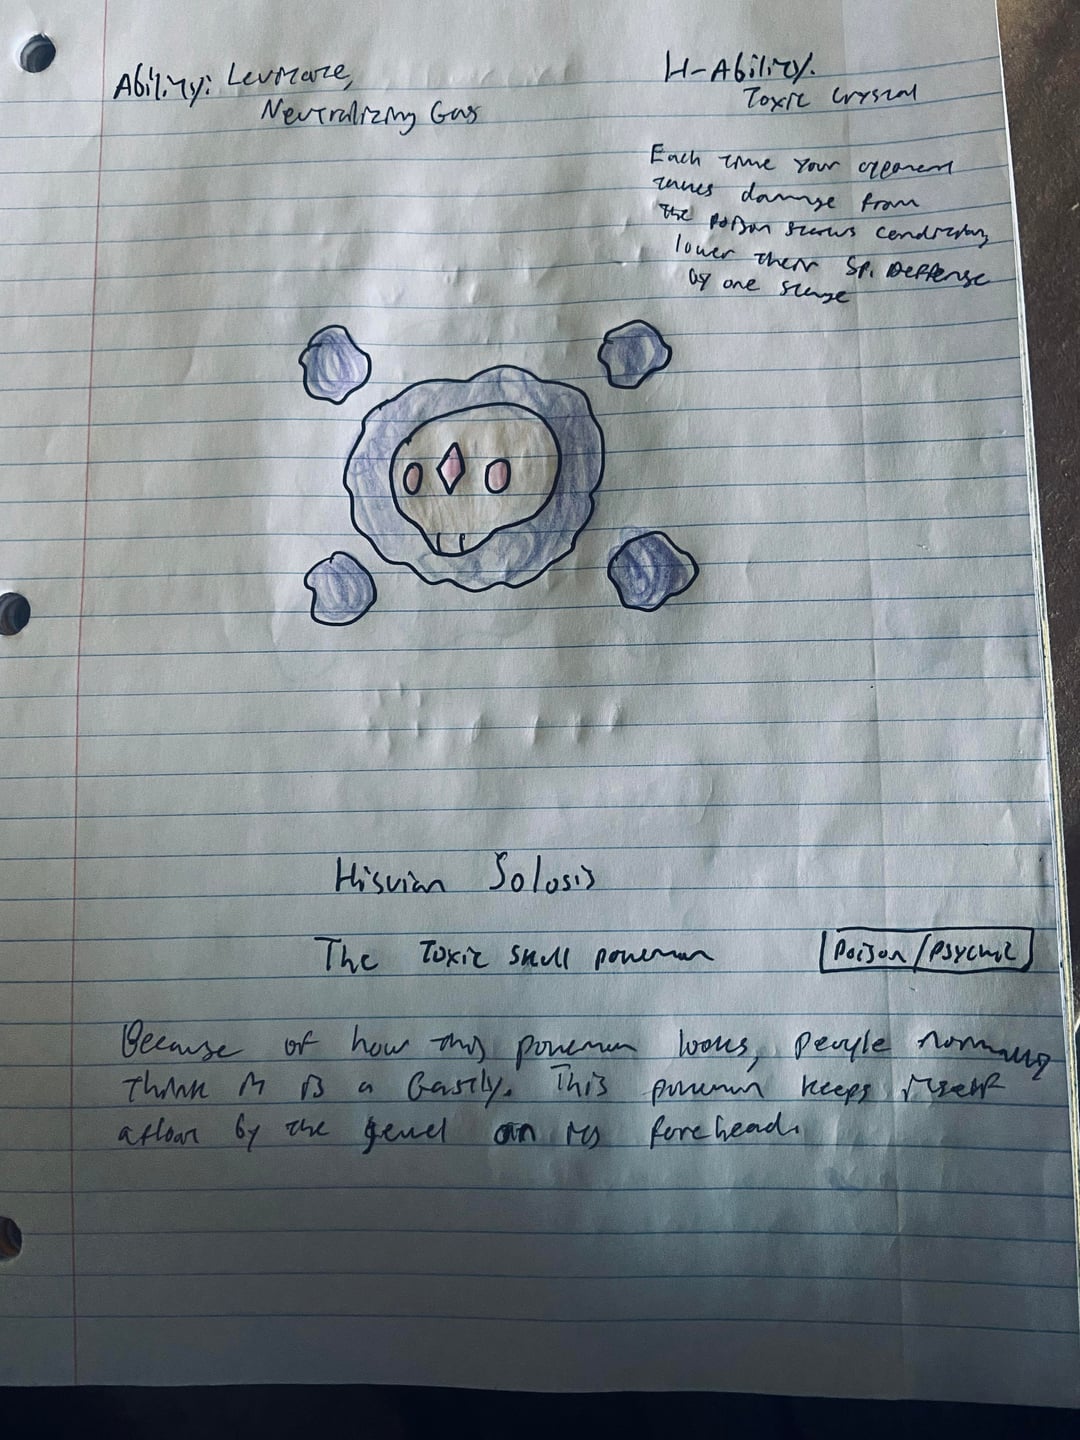 Ability: Levitate,
Neutralizing Gas
H-Ability:
Toxic Crystal
Each time your opponent
takes damage from
the poison status condition,
lower their Sp. Deffense
by one stage
Hisuian Solosis
The Toxic skull pokemon
Poison/Psychic
Because of how this pokemon looks, people normally
think it is a Gastly. This pokemon keeps itself
afloat by the jewel on its forehead.